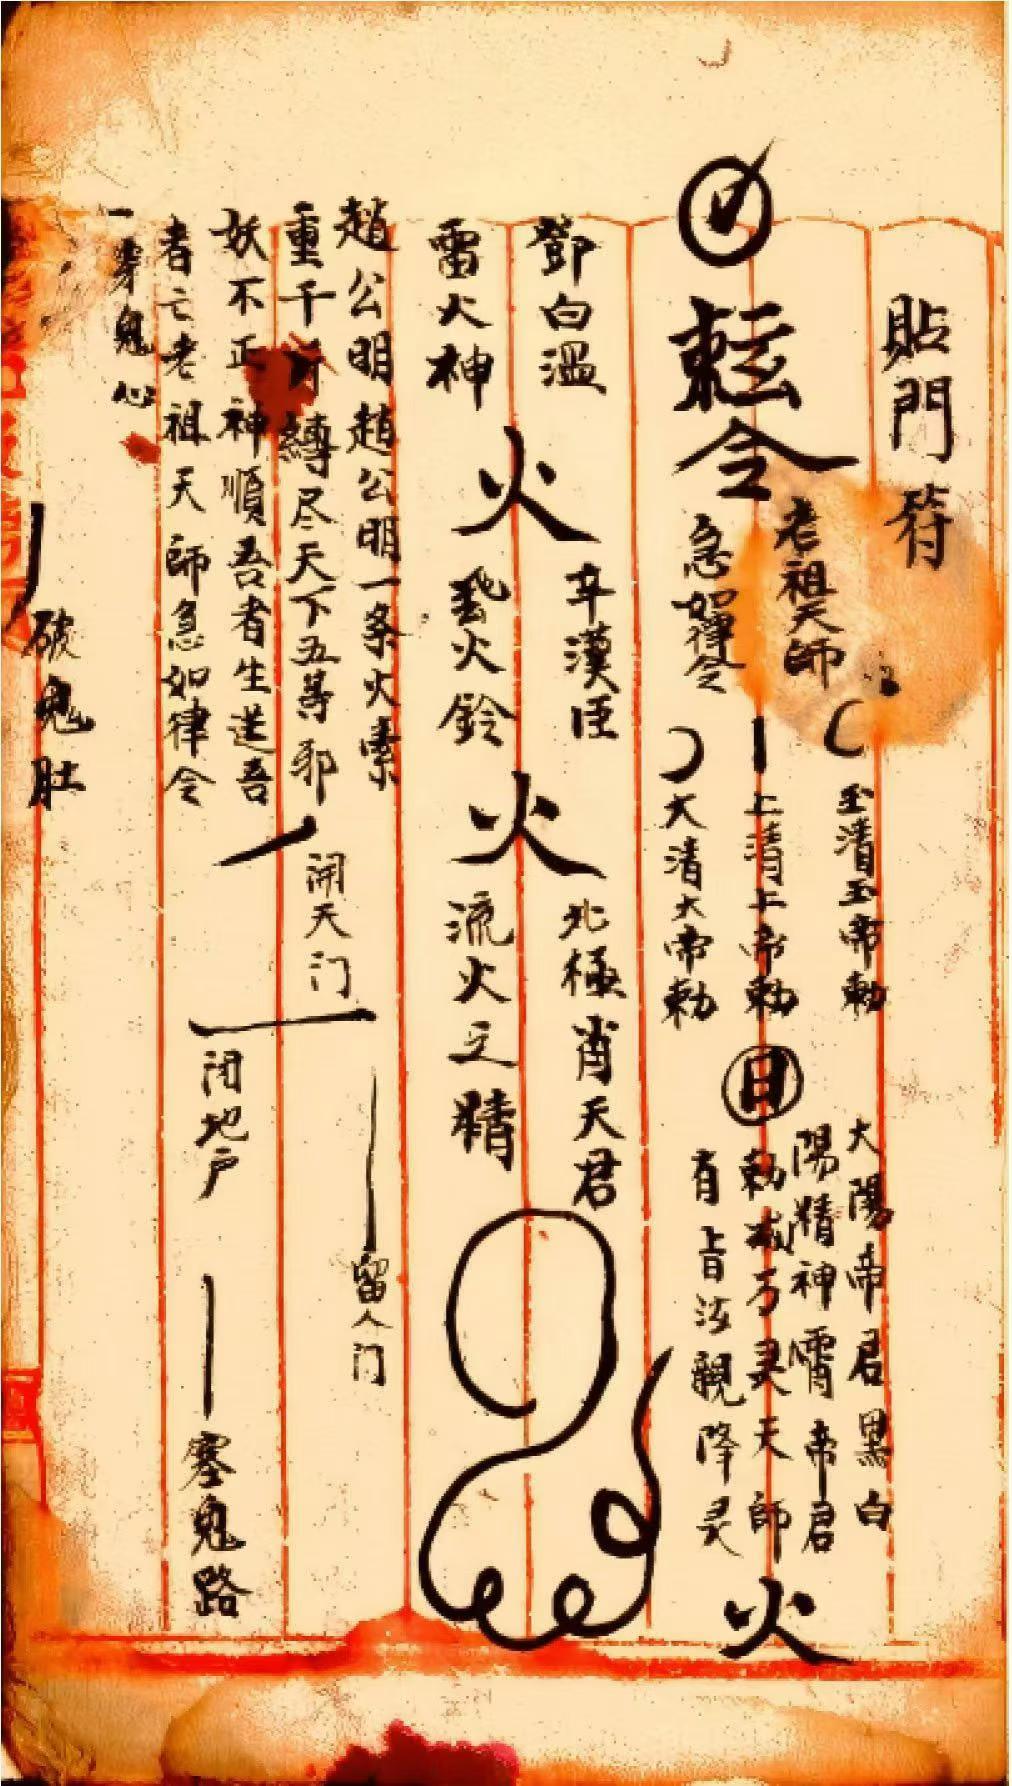 貼門符
日
令
老祖天師
急如律令
玉清玉帝勅
上清上帝勅
大清大帝勅
日
大陽帝君黑白
陽精神霄帝君
勅万灵天師
有旨汝親降灵
火
鄧白溫
雷火神
火
辛漢臣
飛火鈴
火
北極肖天君
流火之精
趙公明趙公明一条火索
重千斤縛尽天下五等邪
妖不正神順吾者生逆吾
者亡老祖天師急如律令
開天门
闭地户
留人门
塞鬼路
一穿鬼心
破鬼肚